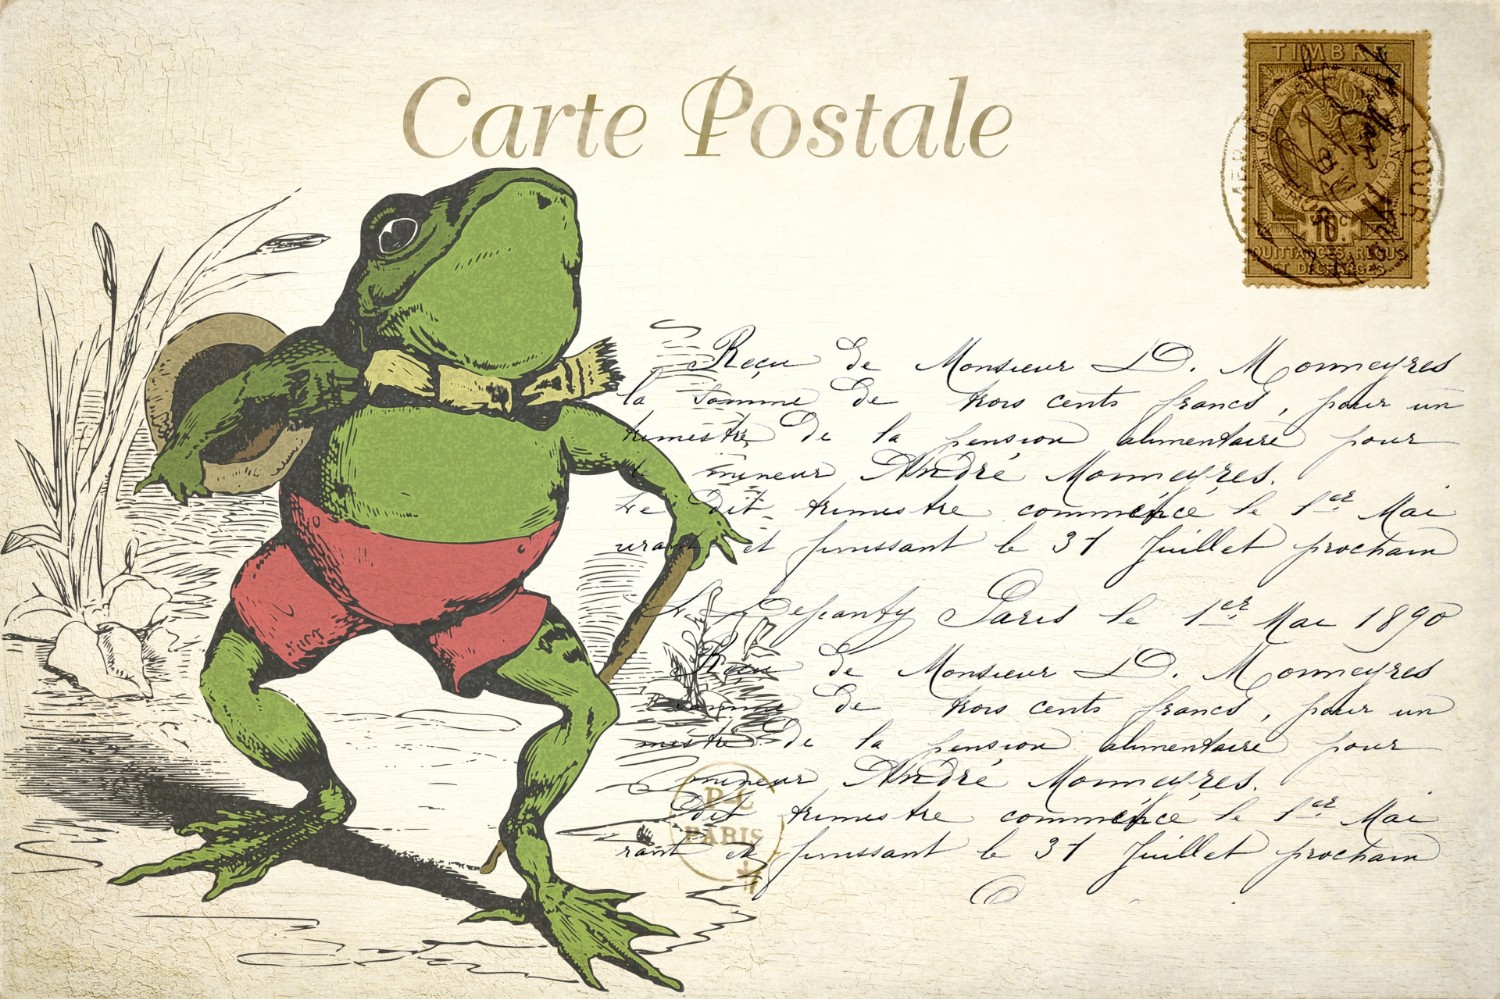 Carte Postale
TIMBRE
10c
QUITTANCES, REÇUS
ET DÉCHARGES
Reçu de Monsieur D. Monneyres
la somme de trois cents francs, pour un
trimestre de la pension alimentaire pour
mineur André Monneyres.
Le dit trimestre commencé le 1er Mai
et finissant le 31 Juillet prochain
Paris le 1er Mai 1890
Reçu de Monsieur D. Monneyres
somme de trois cents francs, pour un
de la pension alimentaire pour
mineur André Monneyres.
Dit trimestre commencé le 1er Mai
et finissant le 31 Juillet prochain
PARIS